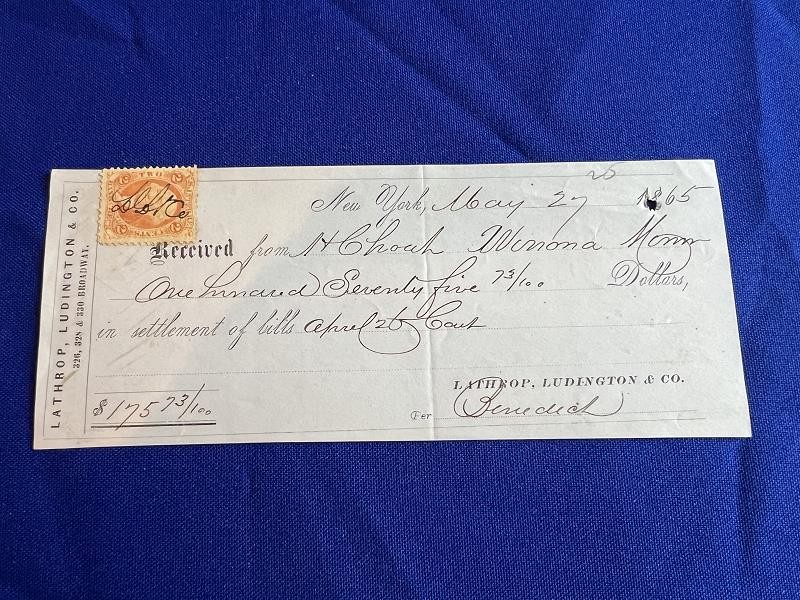 LATHROP, LUDINGTON & CO.
326, 328 & 330 BROADWAY.
TWO
2 2
L L & Co
25
New York, May 27 1865
Received from H Choat Winona Minn
One hundred Seventy five 73/100 Dollars,
in settlement of bills April 26 Cout
LATHROP, LUDINGTON & CO.
$175 73/100
Per Benedict